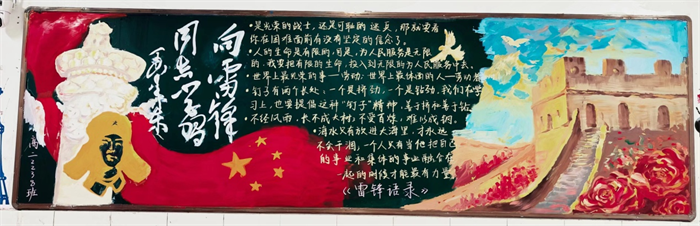 向雷锋
同志学习
毛泽东
•是光荣的战士，还是可耻的逃兵，那就要看
你在困难面前有没有坚定的信念了。
•人的生命是有限的，可是，为人民服务是无限
的，我要把有限的生命，投入到无限的为人民服务中去。
•世界上最光荣的事—劳动，世界上最体面的人—劳动者
•钉子有两个长处，一个是挤劲，一个是钻劲，我们在学
习上，也要提倡这种"钉子"精神，善于挤和善于钻。
•不经风雨，长不成大树，不受百炼，难以成钢。
•滴水只有放进大海里，才永远
不会干涸，一个人只有当他把自己
的事业和集体的事业融合在
一起的时候才能最有力量
《雷锋语录》
高二2238班